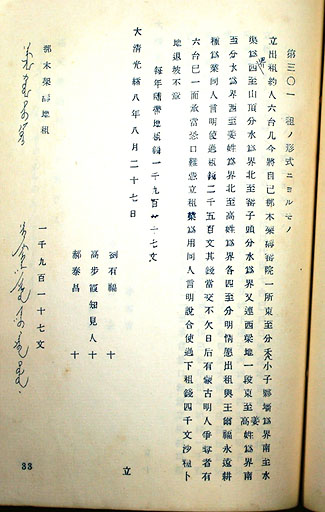 第三〇一 租ノ形式ニヨルモノ
立出租約人六台几今將自己郝木架碼窰院一所東至分禿小子夥墻爲界南至水
爲界西至山頂分水爲界北至窰子頭分水爲界又連西梁地一段東至高姓爲界南
至分水爲界西至姜姓爲界北至高姓爲界各四至分明情愿出租與王爾福永遠耕
種爲業同人言明使過租錢二千五百文其錢當交不欠日后有蒙古明人爭奪者有
六台巳一面承當恐口難憑立租約爲用同人言明說合使過下租錢四千文沙
地退皮不
每年隨帶地租錢一千九百一十七文
大清光緒八年八月二十七日
劉有福 十
高步霞知見人 十
郝泰昌 十
立
郝木架碼地租 一千九百一十七文
33